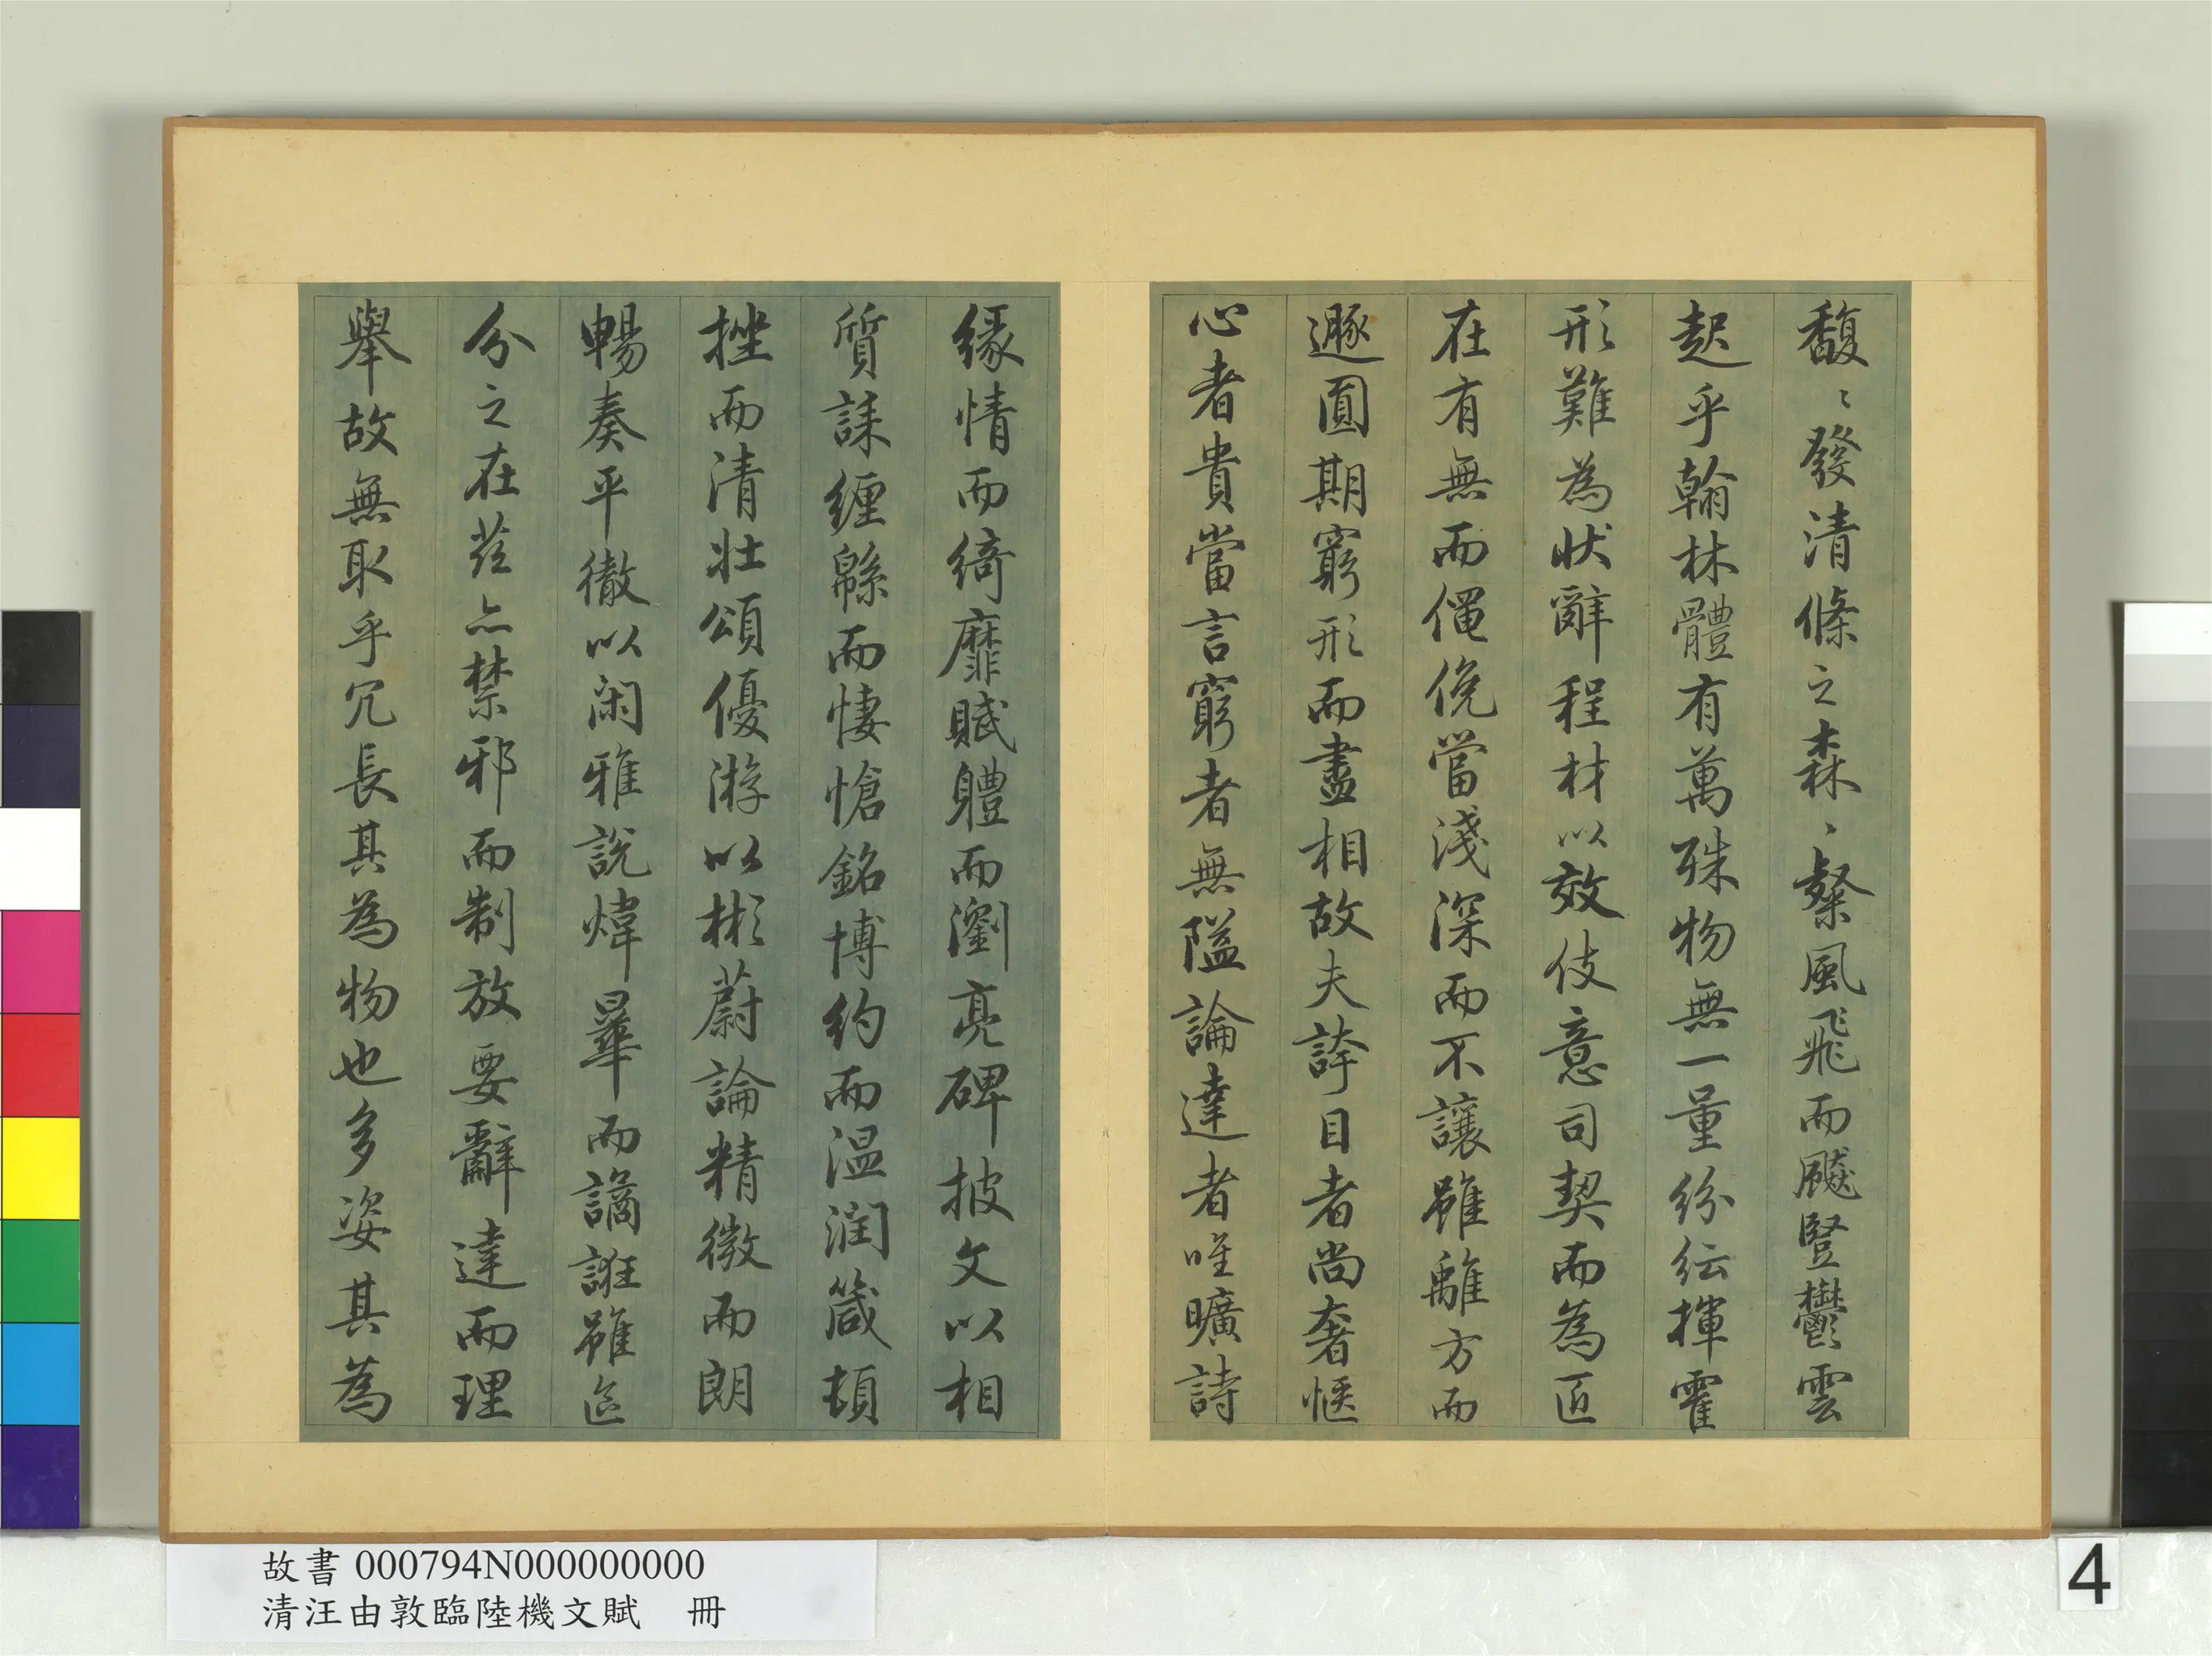 馥〻發清條之森〻粲風飛而飇豎鬱雲
起乎翰林體有萬殊物無一量紛紜揮霍
形難為狀辭程材以效伎意司契而為匠
在有無而僶俛當淺深而不讓雖離方而
遯圓期窮形而盡相故夫誇目者尚奢愜
心者貴當言窮者無隘論達者唯曠詩
緣情而綺靡賦軆而瀏亮碑披文以相
質誄纏緜而悽愴銘博約而溫潤箴頓
挫而清壯頌優游以彬蔚論精微而朗
暢奏平徹以閑雅說煒曄而譎誑雖區
分之在茲亦禁邪而制放要辭達而理
舉故無取乎冗長其為物也多姿其為
故書 000794N000000000
清汪由敦臨陸機文賦 冊
4